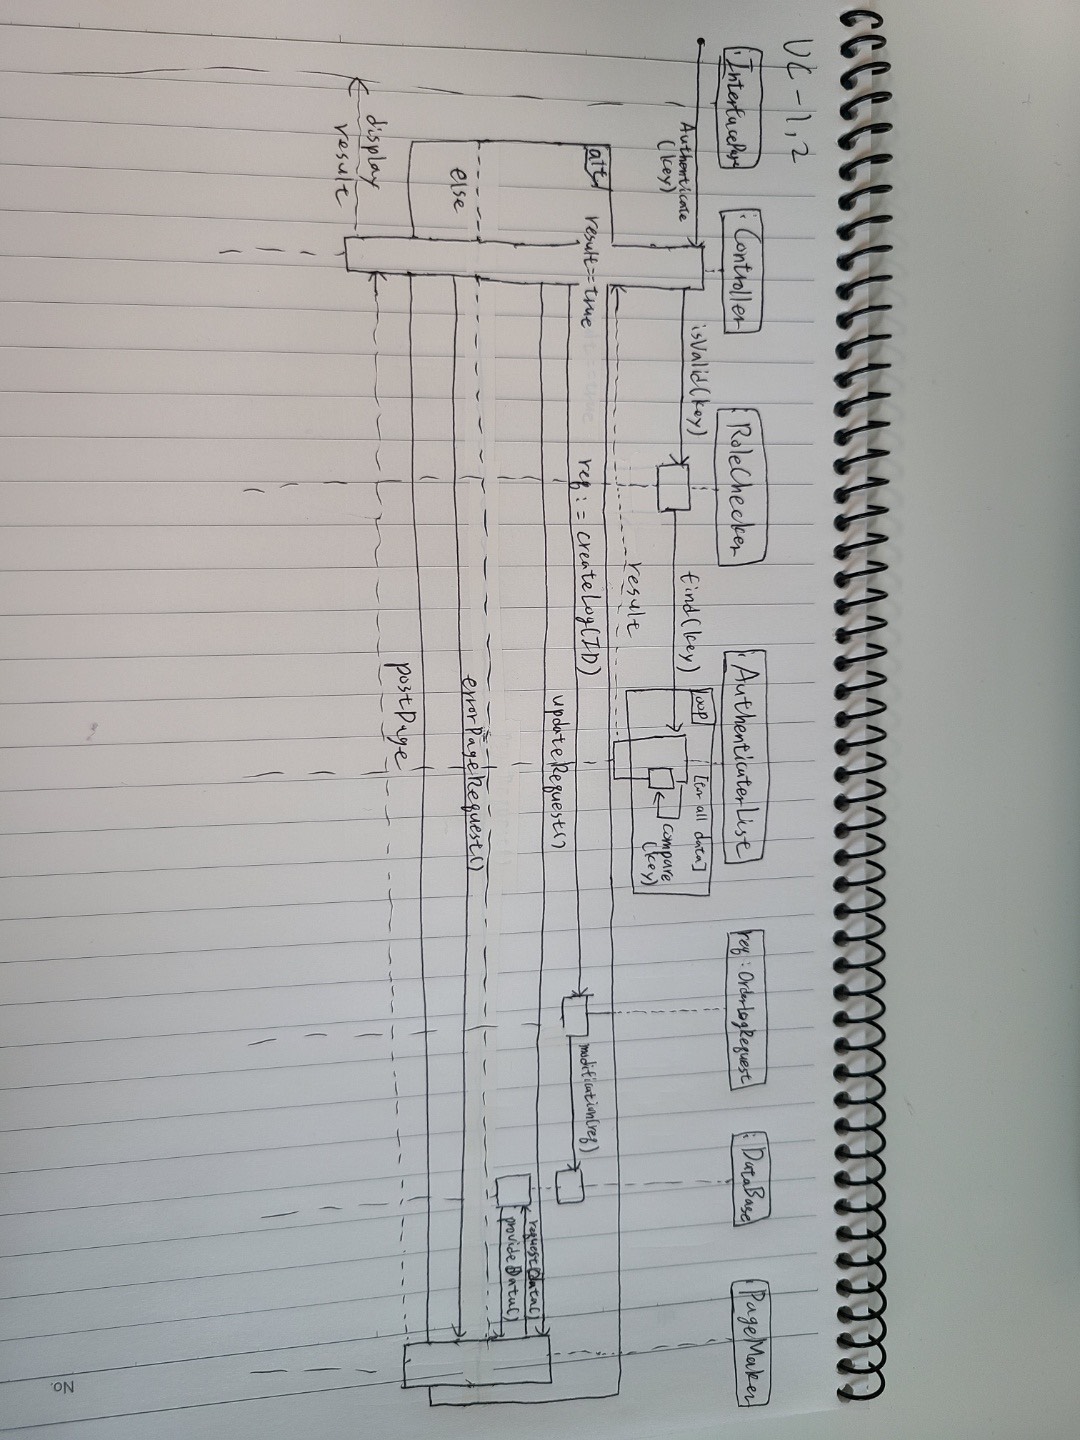 UC-1,2
:InterfacePage
:Controller
:RoleChecker
:AuthenticaterList
req:OrderLogRequest
:DataBase
:PageMaker
Authenticate
(key)
isValid(key)
find(key)
loop
[for all data]
compare
(key)
result
alt
result==true
req:=createLog(ID)
modification(req)
updateRequest()
requestData()
provideData()
else
errorPageRequest()
postPage
display
result
No.